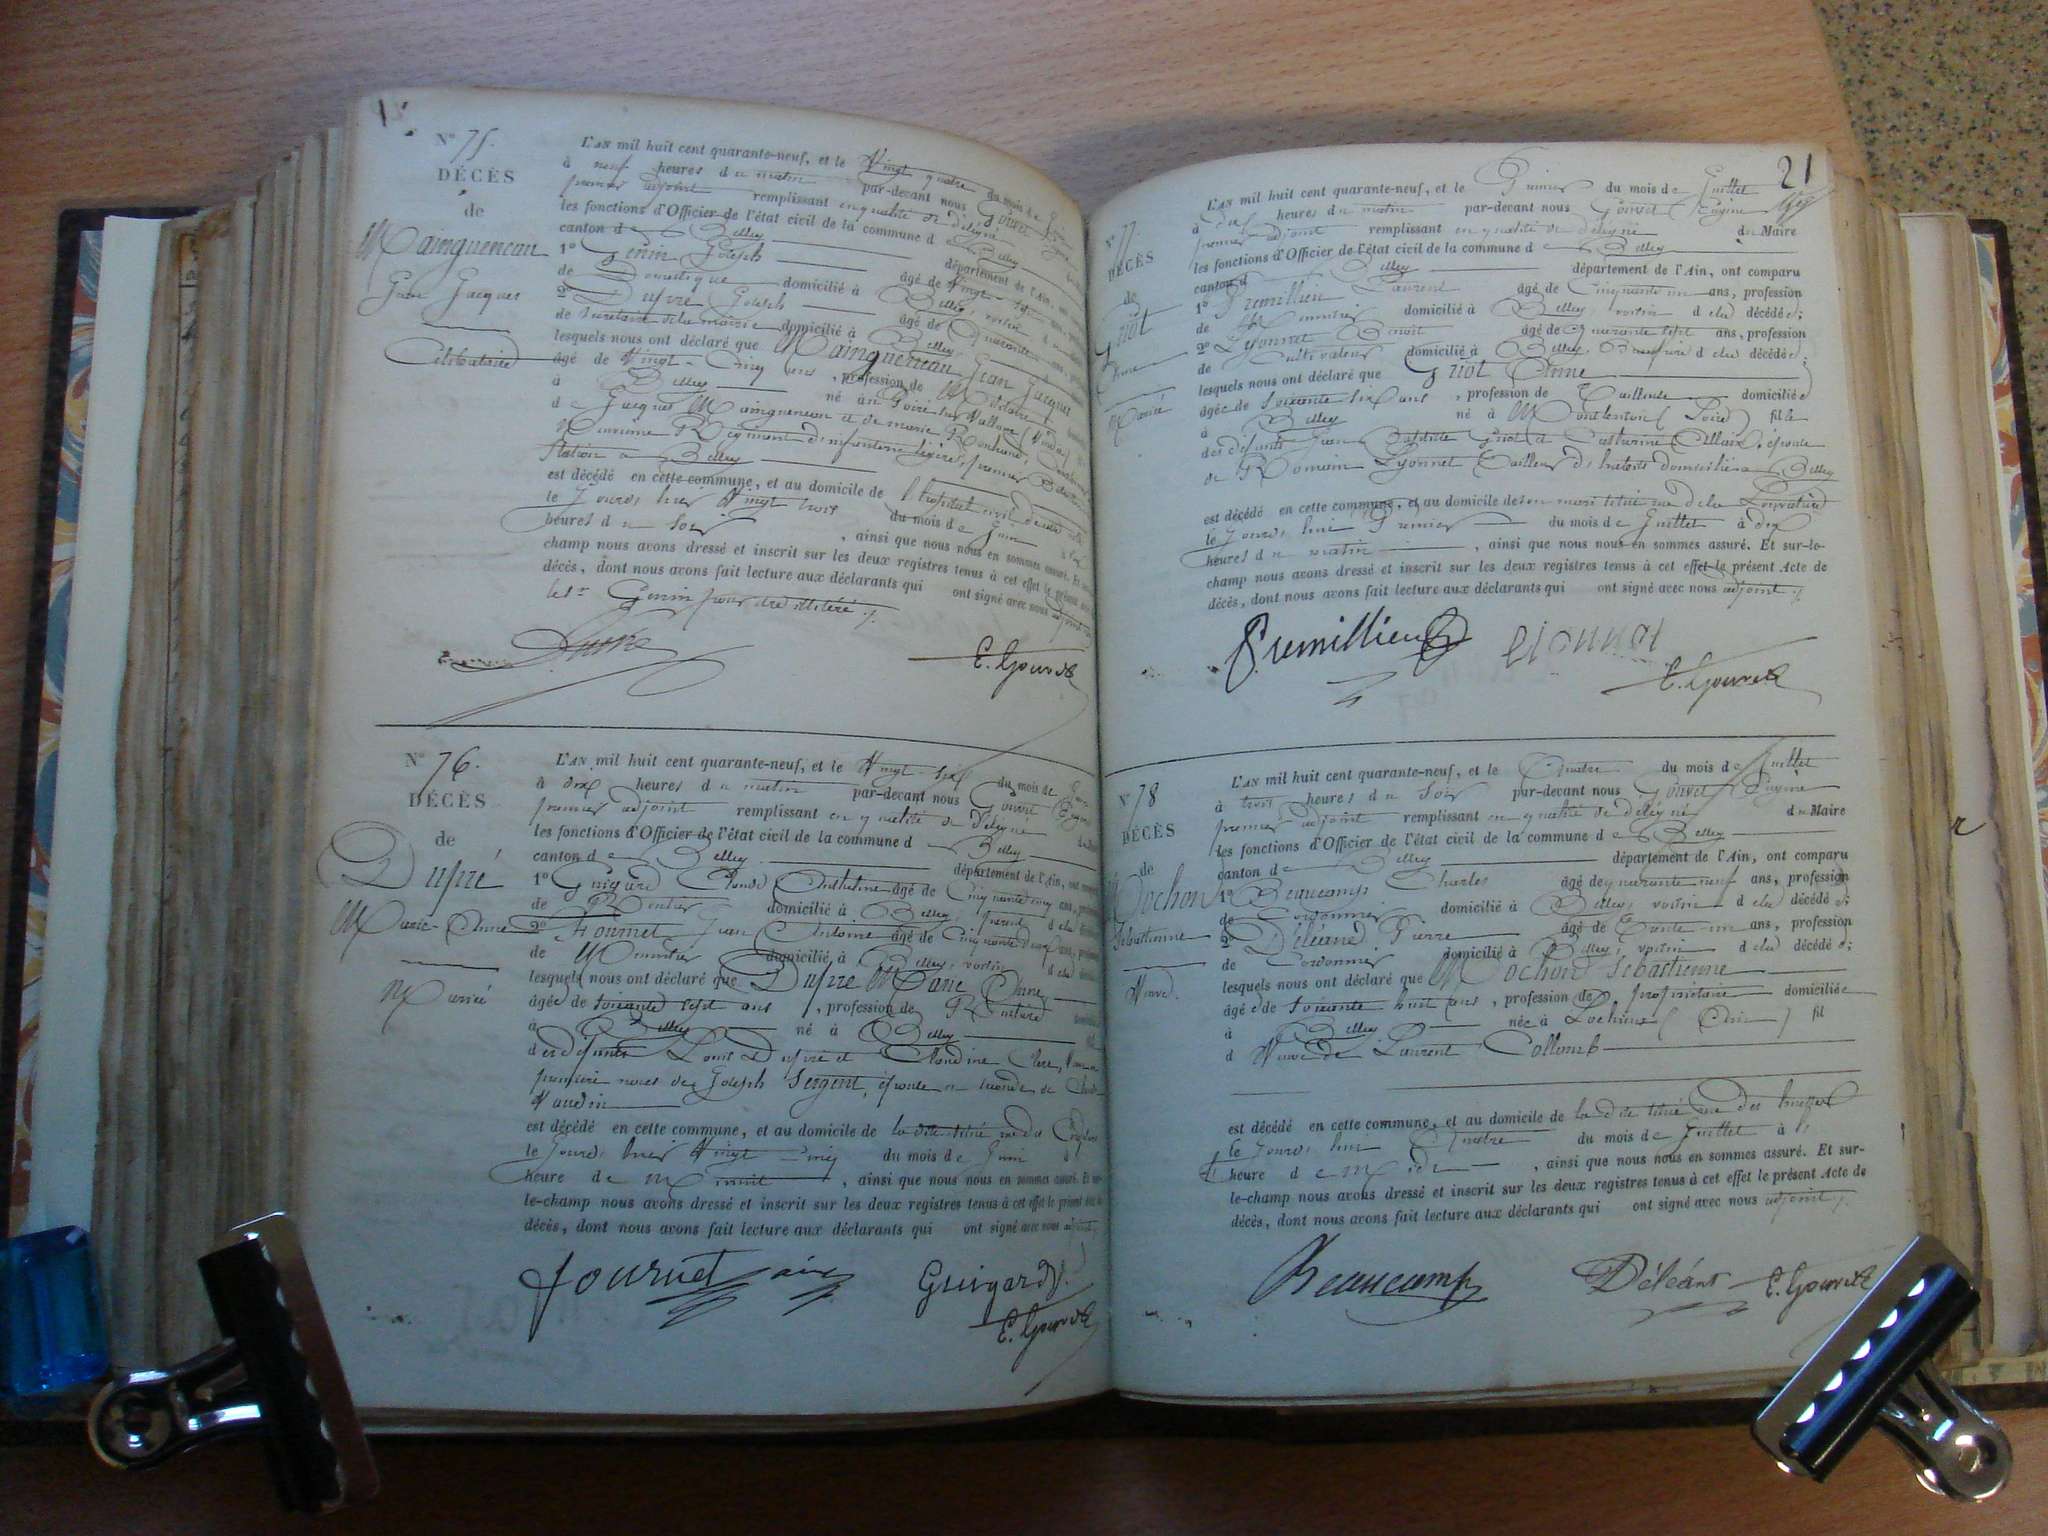 Nº 75.
DÉCÈS
de
Maingueneau
Jean Jacques
Célibataire
L'AN mil huit cent quarante-neuf, et le Vingt quatre du mois de Juin
à neuf heures du matin par-devant nous Gouvet Eugène
premier adjoint remplissant en qualité de délégué
les fonctions d'Officier de l'état civil de la commune de Belley
canton de Belley département de l'Ain, ont
1º Genin Joseph âgé de Vingt-sept
de Domestique domicilié à Belley, voisin
2º Dupré Joseph âgé de Quarante
de Secrétaire de la mairie domicilié à Belley,
lesquels nous ont déclaré que Maingueneau Jean Jacques
âgé de Vingt-Cinq ans, profession de Militaire
à Belley né au Poiré sur
de Jacques Maingueneau et de marie
Régiment d'infanterie légère, premier
Station à Belley
est décédé en cette commune, et au domicile de l'hopital civil de
le Jourd. hier Vingt trois du mois de Juin à
heures du soir, ainsi que nous nous en sommes assuré. Et
champ nous avons dressé et inscrit sur les deux registres tenus à cet effet le présent
décès, dont nous avons fait lecture aux déclarants qui ont signé avec nous adjoint
le Sr Genin pour être illitéré ./.
Dupré
E. Gouvet
Nº 76.
DÉCÈS
de
Dupré
Marie-Anne
Mariée
L'AN mil huit cent quarante-neuf, et le Vingt-six du mois de Juin
à dix heures du matin par-devant nous Gouvet Eugène
premier adjoint remplissant en qualité de Délégué
les fonctions d'Officier de l'état civil de la commune de Belley
canton de Belley département de l'Ain, ont
1º Guigard Claude Anthelme âgé de Cinquante cinq ans,
de Rentier domicilié à Belley, parent
2º Fournet Jean Antoine âgé de Cinquante deux ans,
de Menuisier domicilié à Belley, voisin
lesquels nous ont déclaré que Dupré Marie Anne
âgée de soixante sept ans, profession de Rentière
à Belley né à Belley
des défunts Louis Dupré et Claudine
première noces de Joseph Sergent, épouse en seconde de
Vaudin
est décédé en cette commune, et au domicile de la dite située rue du
le Jourd. hier Vingt-cinq du mois de Juin à
heure de Minuit, ainsi que nous nous en sommes assuré. Et sur-
le-champ nous avons dressé et inscrit sur les deux registres tenus à cet effet le présent
décès, dont nous avons fait lecture aux déclarants qui ont signé avec nous adjoint
fournet ainé Guigard
E. Gouvet
21
Nº 77.
DÉCÈS
de
Griot
Anne
Mariée
L'AN mil huit cent quarante-neuf, et le Premier du mois de Juillet
à dix heures du matin par-devant nous Gouvet Eugène
premier adjoint remplissant en qualité de délégué du Maire
les fonctions d'Officier de l'état civil de la commune de Belley
canton de Belley département de l'Ain, ont comparu
1º Premillieu Laurent âgé de Cinquante un ans, profession
de domicilié à Belley, voisin de la décédée;
2º Lyonnet Benoit âgé de Quarante sept ans, profession
de Cultivateur domicilié à Belley, Beaufrère de la décédée;
lesquels nous ont déclaré que Griot Anne
âgée de soixante six ans, profession de Tailleuse domiciliée
à Belley né à (Loire) fille
des défunts Jean Baptiste Griot et Catherine Allaix, épouse
de Romain Lyonnet Tailleur d'habits domicilié à Belley
est décédé en cette commune, et au domicile de son mari situé rue de la
le Jourd. hui Premier du mois de Juillet à dix
heures du matin, ainsi que nous nous en sommes assuré. Et sur-le-
champ nous avons dressé et inscrit sur les deux registres tenus à cet effet le présent Acte de
décès, dont nous avons fait lecture aux déclarants qui ont signé avec nous adjoint ./.
Premillieu
E. Gouvet
Nº 78
DÉCÈS
de
Mochon
Sébastienne
Veuve.
L'AN mil huit cent quarante-neuf, et le Quatre du mois de Juillet
à trois heures du Soir par-devant nous Gouvet Eugène
premier adjoint remplissant en qualité de délégué du Maire
les fonctions d'Officier de l'état civil de la commune de Belley
canton de Belley département de l'Ain, ont comparu
1º Beaucamp Charles âgé de quarante neuf ans, profession
de Cordonnier domicilié à Belley, voisin de la décédée;
2º Déléand Pierre âgé de Trente-un ans, profession
de Cordonnier domicilié à Belley, voisin de la décédée;
lesquels nous ont déclaré que Mochon Sébastienne
âgée de soixante huit ans, profession de propriétaire domiciliée
à Belley née à Lochieu (Ain) fil
d Veuve de Laurent Collomb
est décédé en cette commune, et au domicile de la dite située rue des
le Jourd. hui Quatre du mois de Juillet à
heure de Midi, ainsi que nous nous en sommes assuré. Et sur-
le-champ nous avons dressé et inscrit sur les deux registres tenus à cet effet le présent Acte de
décès, dont nous avons fait lecture aux déclarants qui ont signé avec nous adjoint ./.
Beaucamp Déléant E. Gouvet